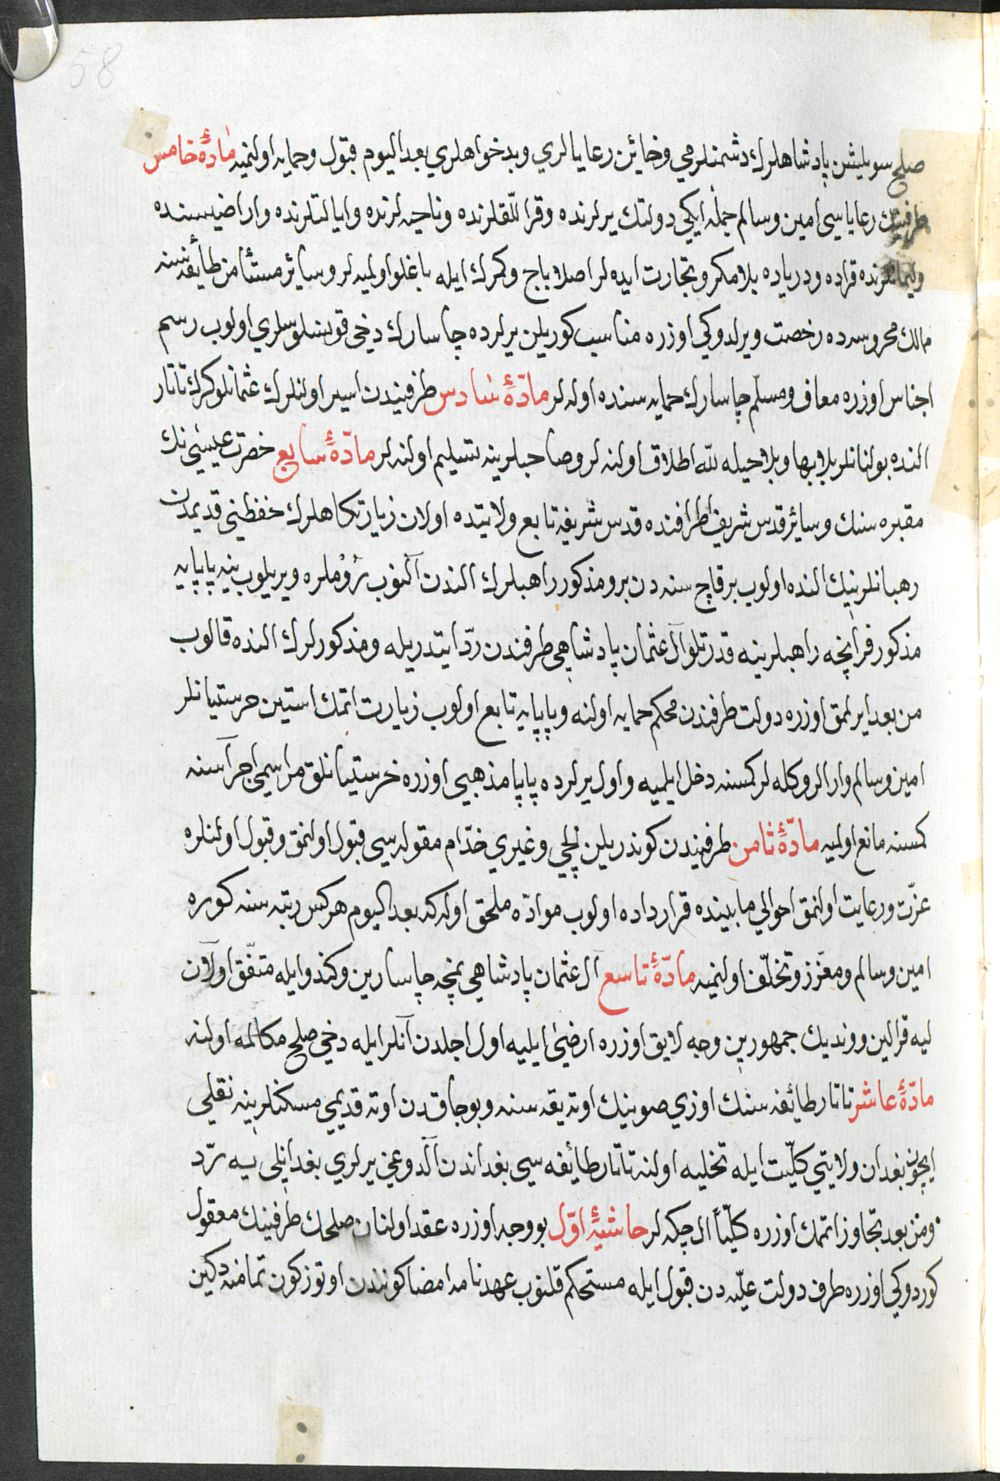 58
صلح سويلشن پادشاهلرك دشمنلرمي وخائن رعايالري وبدخواهلري بعداليوم قبول وحمايه اولنميه مادّهٔ خامس
طرفينك رعاياسي امين وسالم جمله ايكي دولتك يرلرنده وقراللقلرنده وناحيه لرنده وايالتلرنده واراضيسنده
وليمانلرنده قراده ودرياده بلامكر وتجارت ايده لر اصلا باج وكمرك ايله باغلو اولميه لر وسائر مستأمن طائفه سنه
ممالك محروسه ده رخصت ويرلدوكي اوزره مناسب كوريلن يرلرده چاسارك دخي قونسلوسلري اولوب رسم
اجناس اوزره معاف ومسلّم چاسارك حمايه سنده اوله لر مادّهٔ سادس طرفيندن اسير اولنلرك عثمانلو كرك تاتار
النده بولنانلر بلابها وبلاحيله لله اطلاق اولنه لر وصاحبلرينه تسليم اولنه لر مادّهٔ سابع حضرت عيسىنك
مقبره سنك وسائر قدس شريف اطرافنده قدس شريفه تابع ولايتده اولان زيارتكاهلرك حفظني قديمدن
رهبانلرينك النده اولوب برقاچ سنه دن برو مذكور راهبلرك الندن آلنوب رۇملره ويريلوب ينه پاپايه
مذكور فرانچه راهبلرينه قدرتلو آل عثمان پادشاهي طرفندن ردّ ايتدريله ومذكورلرك النده قالوب
من بعد ايرلمق اوزره دولت طرفندن محكم حمايه اولنه وپاپايه تابع اولوب زيارت اتمك استين خرستيانلر
امين وسالم وارالر وكله لر كمسنه دخل ايلميه واول يرلرده پاپا مذهبي اوزره خرستيانلق مراسمي اجراسنه
كمسنه مانع اولميه مادّهٔ ثامن طرفيندن كوندريلن ايلچي وغيري خدّام مقوله سي قبول اولنمق وقبول اولنلره
عزّت ورعايت اولنمق احوالي مابينده قرارداده اولوب موادّه ملحق اوله كه بعداليوم هركس رتبه سنه كوره
امين وسالم ومعزّز وتخلّف اولنميه مادّهٔ تاسع آل عثمان پادشاهي نمچه چاسارين وكندو ايله متفّق اولان
ليه قرالين وونديك جمهورين وجه لايق اوزره ارضىٰ ايليه اول اجلدن آنلر ايله دخي صلح مكالمه اولنه
مادّهٔ عاشر تاتار طائفه سنك اوزي صوينك اوته يقه سنه وبوجاقدن اوته قديمي مسكنلرينه نقلي
ايچون بغدان ولايتي كلّيت ايله تخليه اولنه تاتار طائفه سي بغداندن آلدوغي يرلري بغدانلي يه ردّ
ومن بعد تجاوز اتمك اوزره كلّيّاً ال چكه لر حاشيهٔ اوّل بو وجه اوزره عقد اولنان صلحك طرفينك معقول
كوردوكي اوزره طرف دولت عليّه دن قبول ايله مستحكم قلنوب عهدنامه امضا كونندن اوتوز كون تمامنه دكين